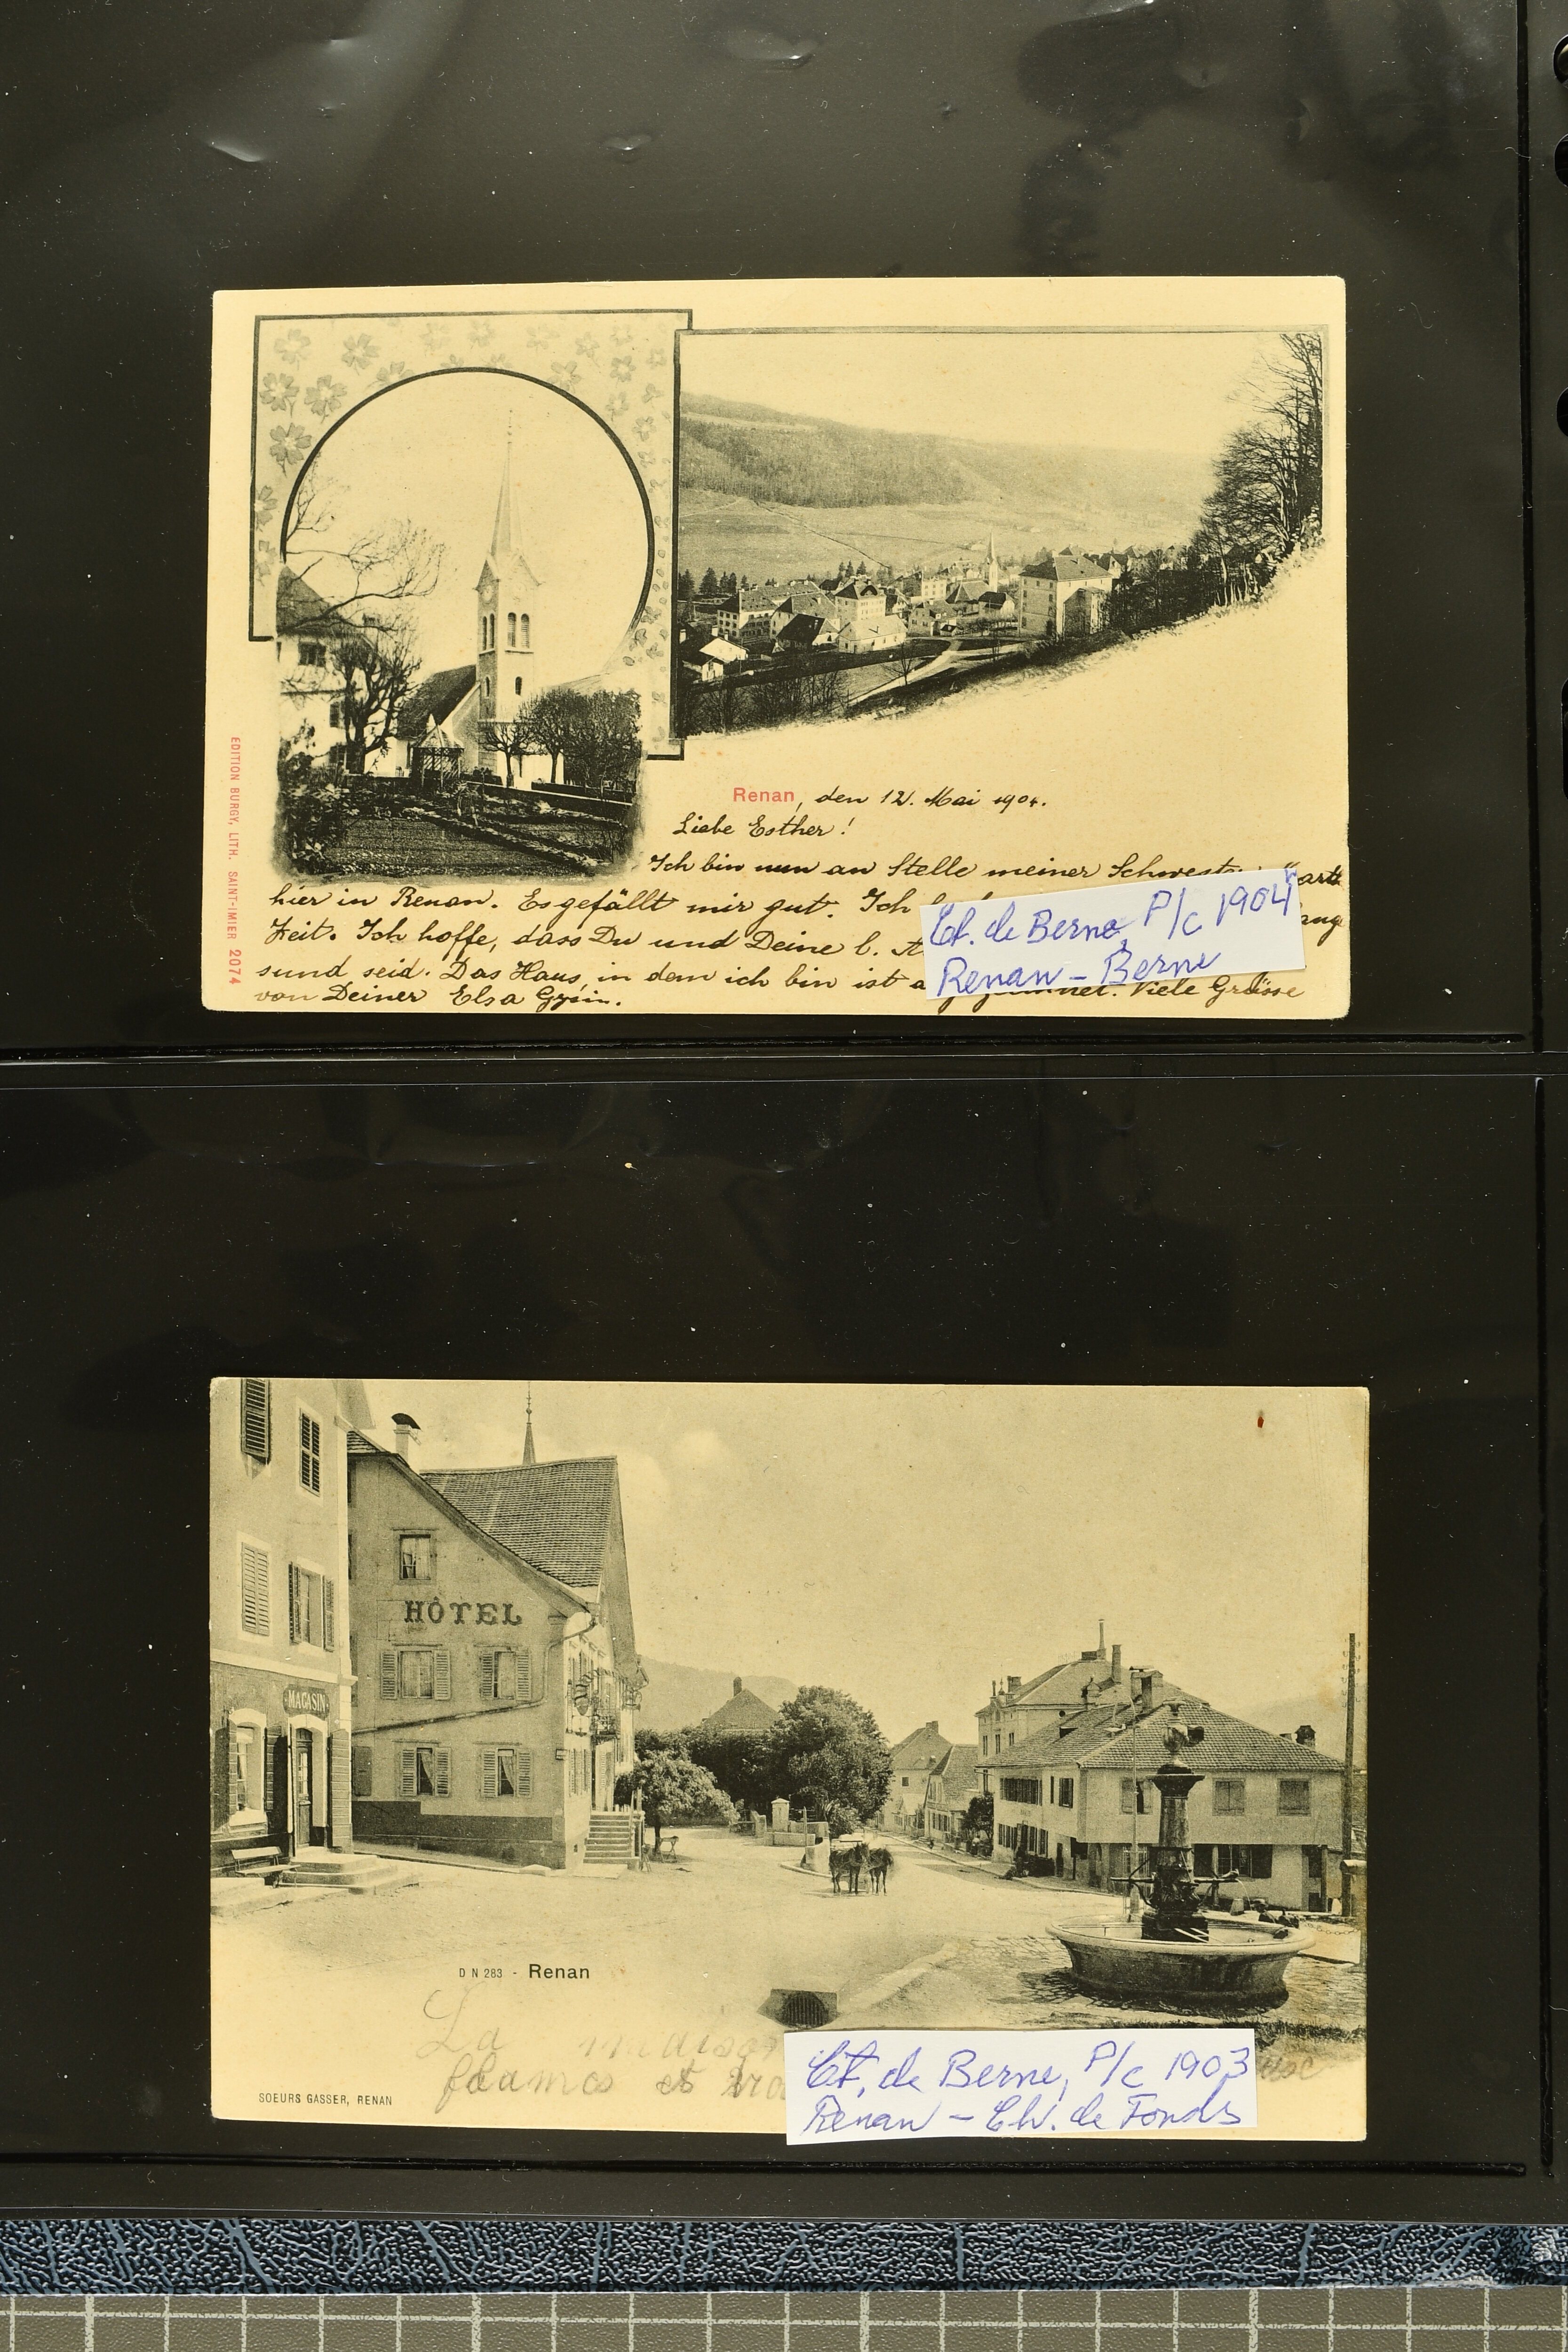 EDITION BURGY, LITH. SAINT-IMIER 2074
Renan, den 12. Mai 1904.
Liebe Esther!
Ich bin nun an Stelle meiner
hier in Renan. Es gefällt mir gut. Ich
Zeit. Ich hoffe, dass Du und Deine l.
sund seid. Das Haus, in dem ich bin ist Viele Grüsse
von Deiner Elsa
Ct. de Berne, P/c 1904
Renan - Berne
HÔTEL
MAGASIN
D N 283 - Renan
La maison
flames et
SOEURS GASSER, RENAN
Ct. de Berne, P/c 1903
Renan - Ch. de Fonds